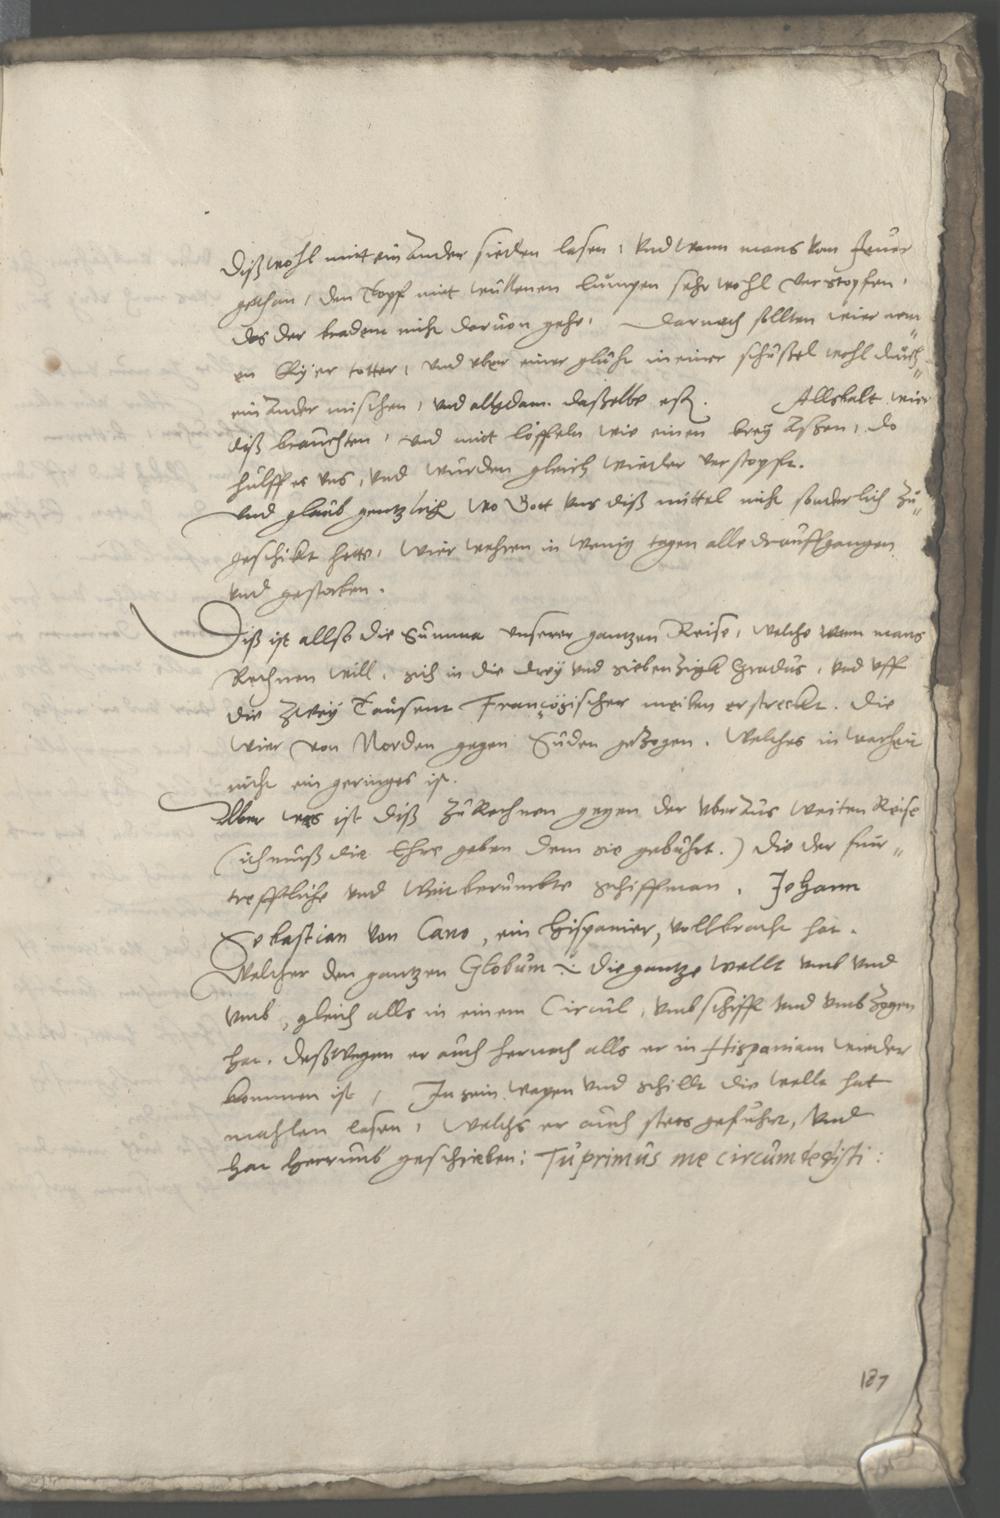 diß wohl mit einander sieden lasen, Vnd wenn mans vom feuer
gethan, den Topf mit wullenen lumpen sehr wohl verstopfen,
das der bradem nicht daruon gehe, Darnach sollten wier nem„
en Eÿer totter, vnd vber einer gluht in einer schüssel wohl durch„
einander mischen, vnd allßdann daßelbe eß. Allsbalt wier
diß brauchten, vnd mit löffeln wie einen breÿ assen, do
hulff es vns, vnd wurden gleich wieder verstopft.
Vnd glaub gentzlich wo Gott vns diß mittel nicht sonderlich zu„
geschikt hette, wier wehren in wenig tagen alle drauffgangen
vnd gestorben.
Diß ist allso die Summa vnserer gantzen Reise, welche wenn mans
Rechnen will, sich in die dreÿ vnd siebenzigk Gradus, vnd vff
die zweÿ Tausent Françösischer meilen erstreckt. die
wier von Norden gegen Suden gezogen. Welches in warheit
nicht ein geringes ist.
Aber was ist diß zu Rechnen gegen der vberaus weiten Reise
(ich muß die Ehre geben dem sie gebührt.) die der fur„
treffliche vnd Weitberumbte schiffman, Johann
Sebastian von Cano, ein Hispanier, vollbracht hat.
Welcher den gantzen Globum i. die gantze wellt vmb vnd
vmb, gleich alls in einem Circul, vmbschifft vnd vmbzogen
hat. deßwegen er auch hernach alls er in Hispaniam wieder
kommen ist, In sein wapen vnd schillt die wellt hat
mahlen lasen, welchs er auch stets gefuhrt, Vnd
hat herrumb geschrieben: Tu primus me circumdedisti:
187